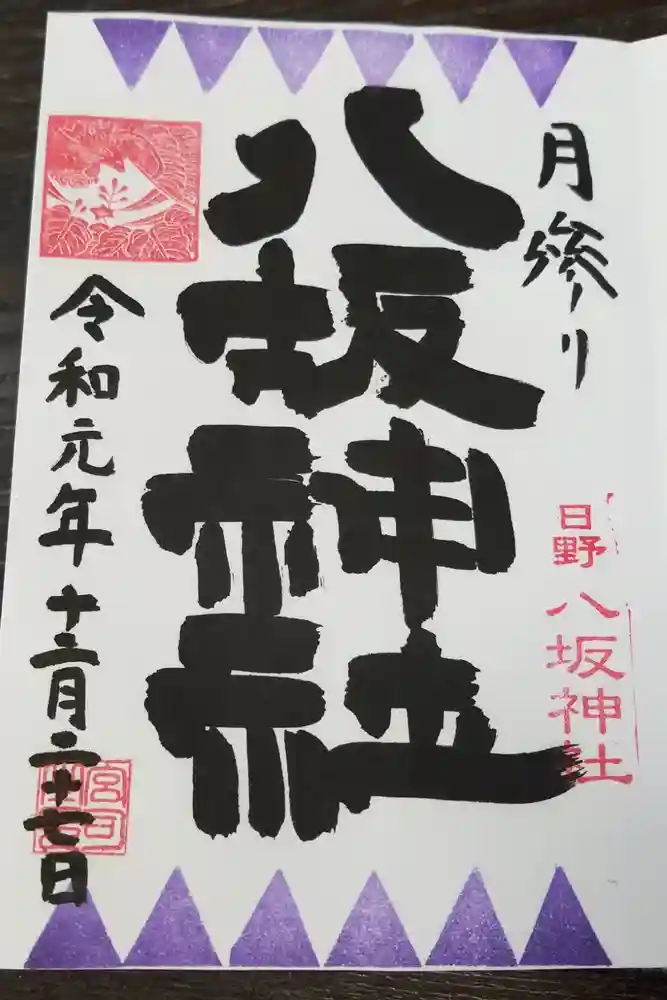 月参り
日野
八坂神社
八坂神社
令和元年十二月二十七日